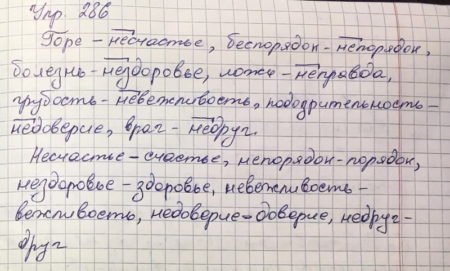 Упр. 286
Горе - несчастье, беспорядок - непорядок,
болезнь - нездоровье, ложь - неправда,
грубость - невежливость, подозрительность -
недоверие, враг - недруг.
Несчастье - счастье, непорядок - порядок,
нездоровье - здоровье, невежливость -
вежливость, недоверие - доверие, недруг -
друг